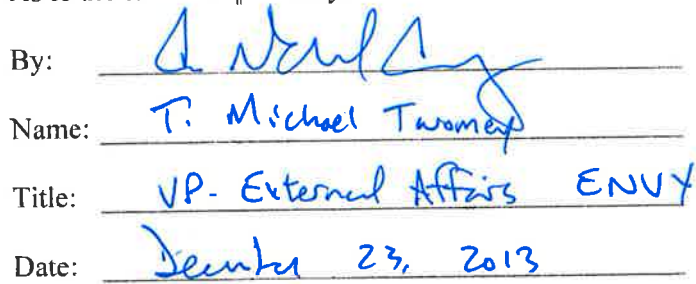 By:
Name: T. Michael Twomey
Title: VP- External Affairs ENVY
Date: December 23, 2013